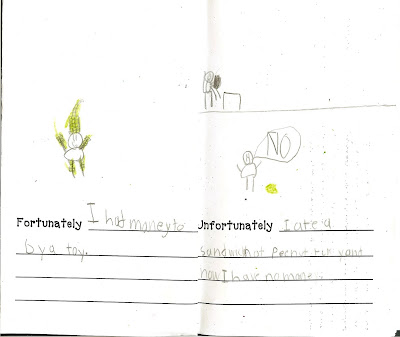 NO
Fortunately I had money to
by a toy.
Unfortunately I ate a
sandwich and
now I have no mone